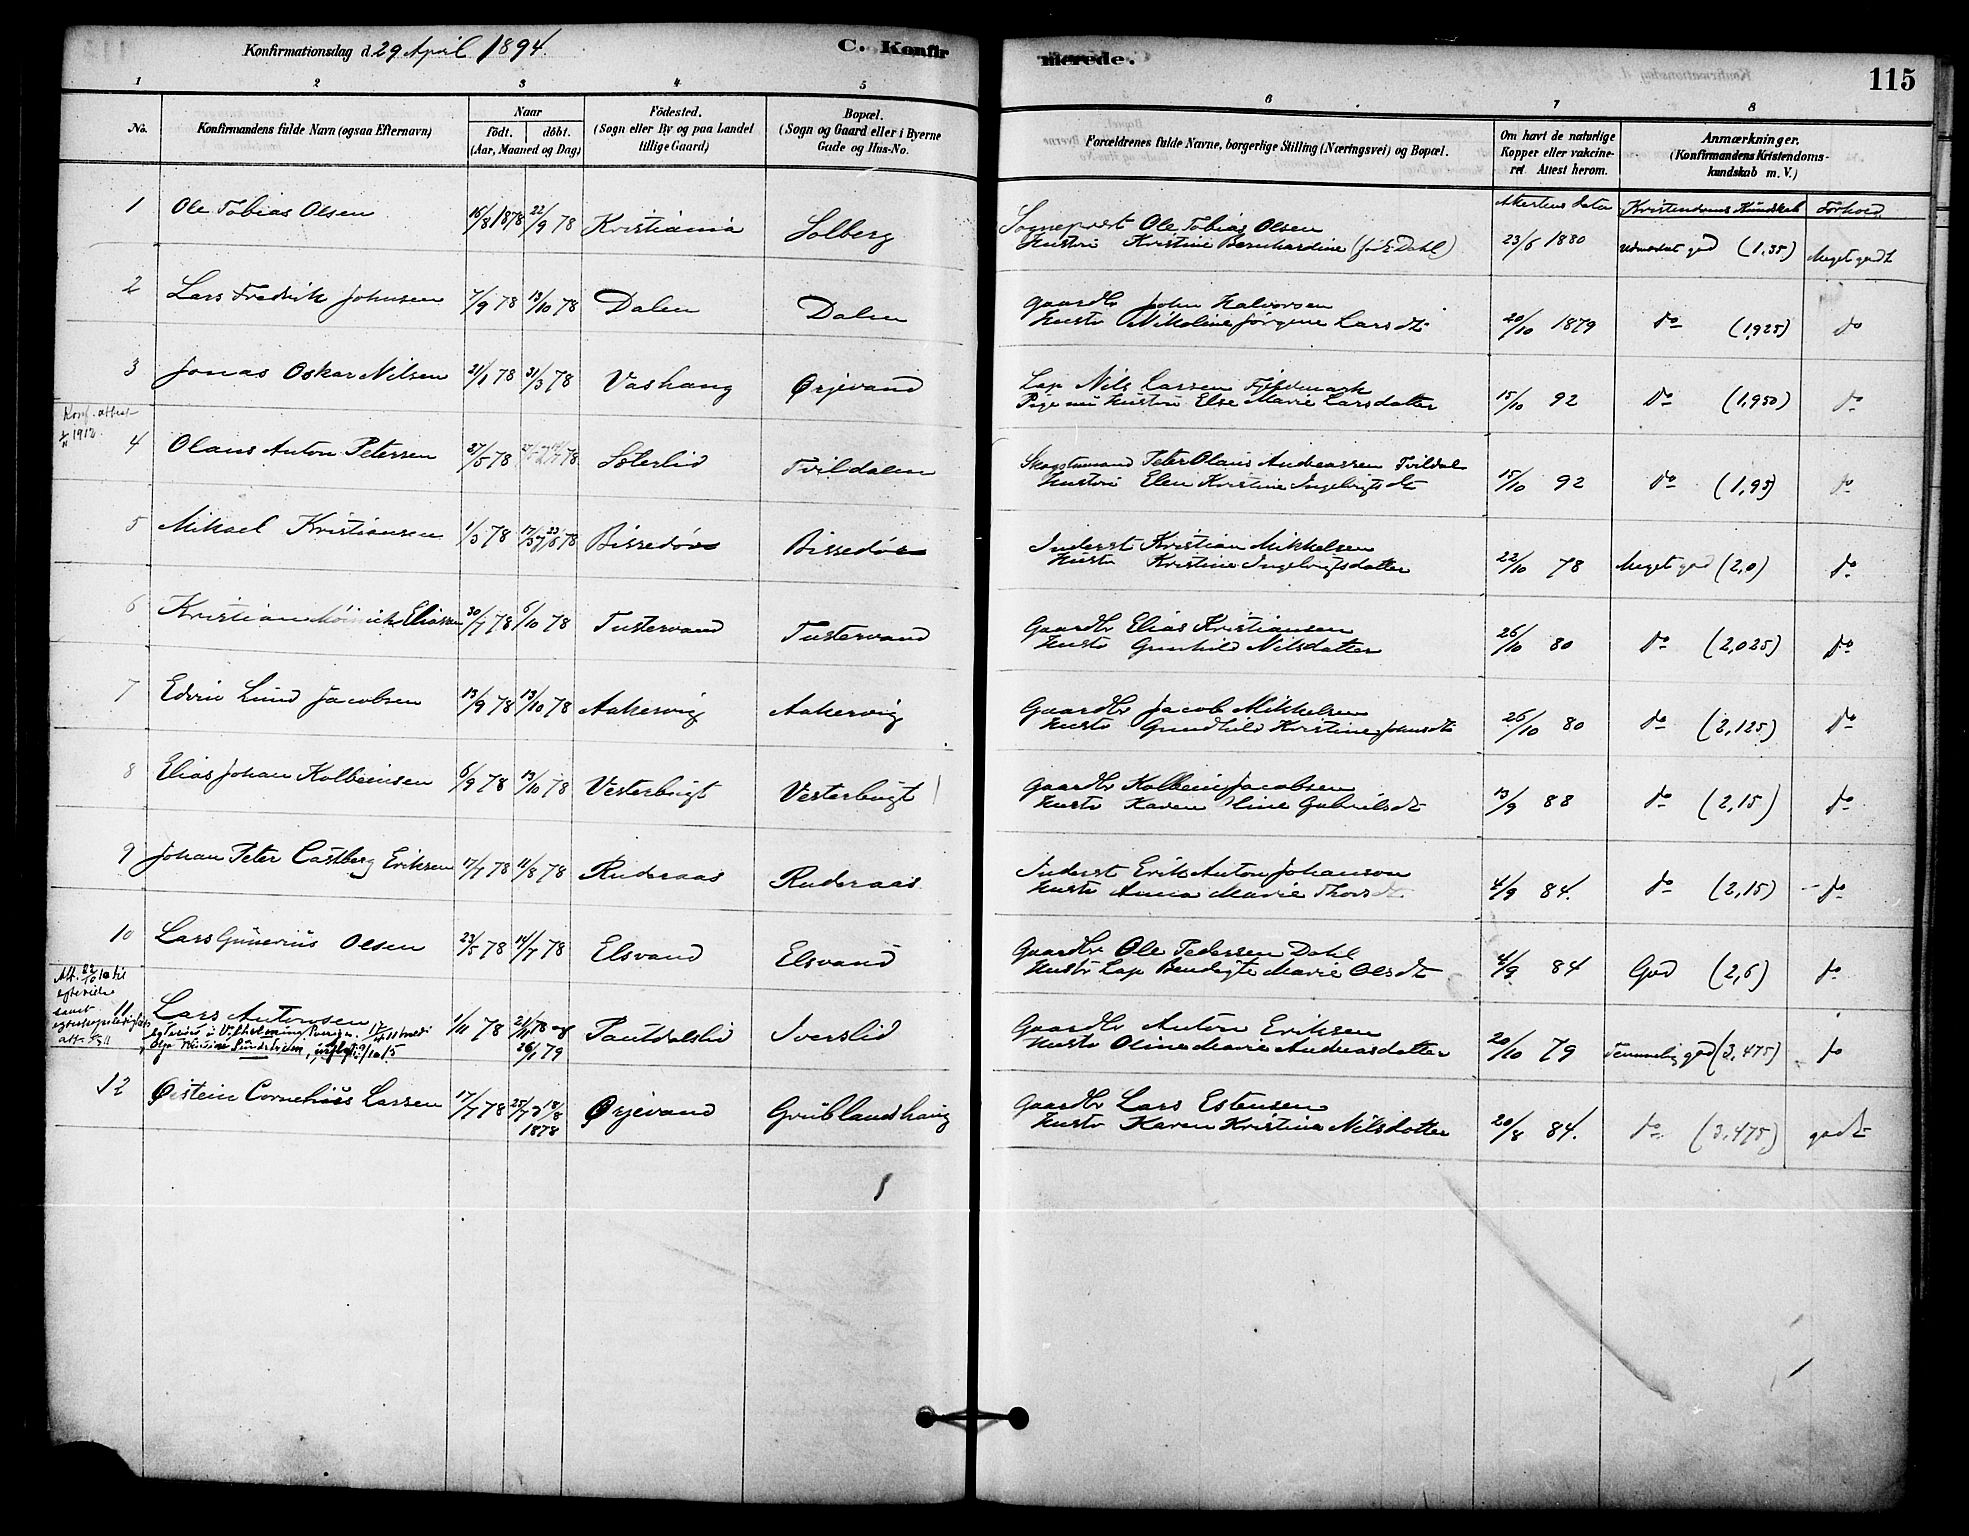 Konfirmationsdag d. 29 April 1894.
C. Konfirmerede.
115
1 2 3 4 5 6 7 8
No. Konfirmandens fulde Navn (ogsaa Efternavn) Naar födt. döbt. (Aar, Maaned og Dag) Födested. (Sogn eller By og paa Landet tillige Gaard) Bopæl. (Sogn og Gaard eller i Byerne Gade og Hus-No. Forældrenes fulde Navne, borgerlige Stilling (Næringsvei) og Bopæl. Om havt de naturlige Kopper eller vakcineret. Attest herom. Anmærkninger. (Konfirmandens Kristendomskundskab m. V.)
Attestens Dato Kristendoms Kundskab Forhold
1 Ole Tobias Olsen 16/8 1878 22/9 78 Kristiania Solberg Sognepræst Ole Tobias Olsen
Hustru Kristine Bernhardine (f. Dahl) 23/6 1880 Udmærket god (1,35) Meget godt
2 Lars Fredrik Johnsen 7/9 78 13/10 78 Dalen Dalen Gaardbr John Halvorsen
Hustr Nikoline Jørgine Larsdt. 20/10 1879 do (1,925) do
3 Jonas Oskar Nilsen 21/1 78 31/3 78 Vashaug Ørjevand Lap Nils Larsen Fjeldmark
Pige nu Hustru Else Marie Larsdatter 15/10 92 do (1,950) do
Konf. attest 1912
4 Olaus Anton Petersen 27/5 78 Sæterlid Tvildalen Peter Olaus Andreassen Tvildal
Hustru Elen Kristine Ingebrigtsdt 15/10 92 do (1,95) do
5 Mikael Kristiansen 1/3 78 Bissedør Bissedør Inderst Kristian Mikkelsen
Hustr Kristine Ingebrigtsdatter 22/10 78 Meget god (2,0) do
6 Kristian Meinich Eliassen 30/7 78 6/10 78 Tustervand Tustervand Gaardbr Elias Kristiansen
Hustr Gunhild Nilsdatter 26/10 80 do (2,025) do
7 Edvin Lund Jacobsen 13/9 78 13/10 78 Aakervig Aakervig Gaardbr Jacob Mikkelsen
Hustr Gundhild Kristine Johnsdt 26/10 80 do (2,125) do
8 Elias Johan Kolbeinsen 6/9 78 13/10 78 Vesterbugt Vesterbugt Gaardbr Kolbein Jacobsen
Hustr Karen Stine Gabrielsdt 13/9 88 do (2,15) do
9 Johan Peter Castberg Eriksen 17/7 78 11/8 78 Ruderaas Ruderaas Inderst Erik Anton Johanson
Hustr Anna Marie Thorsdt 4/9 84. do (2,15) do
10 Lars Gunerius Olsen 23/5 78 14/7 78 Elsvand Elsvand Gaardbr Ole Pedersen Dahl
Hustr Lap Bendigte Marie Olsdt 4/9 84 God (2,6) do
11 Lars Antonsen 1/11 78 21/11 78 26/1 79 Pantdalslid Iverslid Gaardbr Anton Eriksen
Hustr Oline Marie Andreasdatter 20/10 79 Temmelig god (3,475) do
12 Øistein Cornelius Larsen 17/7 78 25/7 18/8 1878 Ørjevand Grublandshaug Gaardbr Lars Estensen
Hustr Karen Kristine Nilsdatter 20/8 84. do (3,475) godt